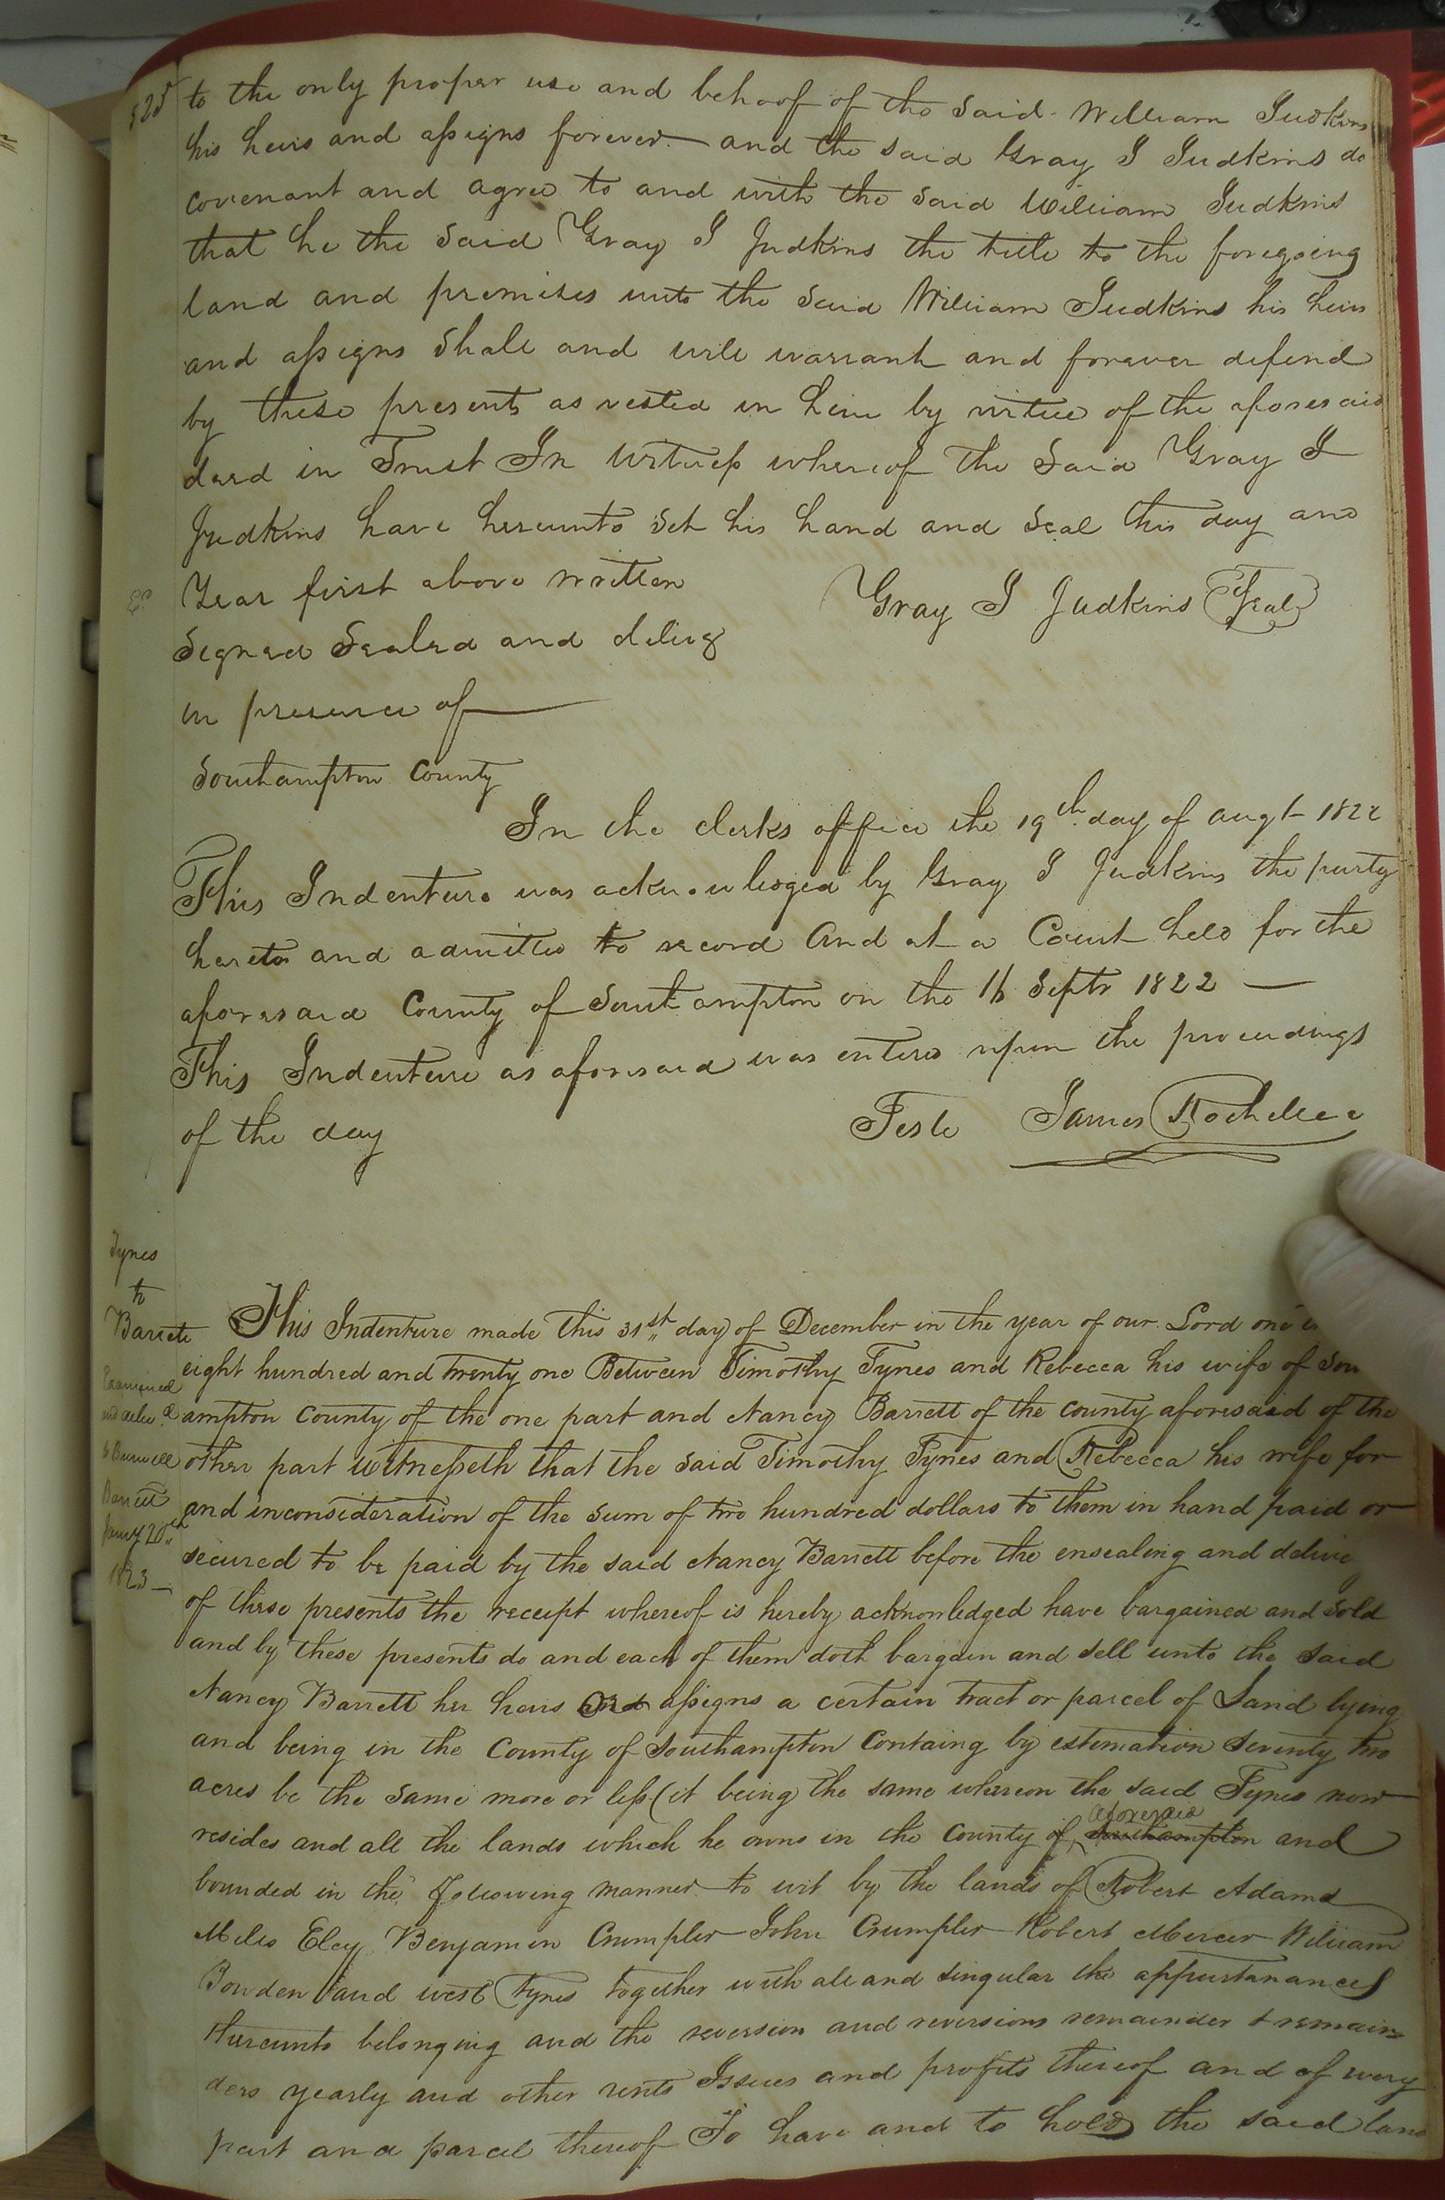 525
to the only proper use and behoof of the said William Judkins
his heirs and assigns forever and the said Gray J Judkins do
covenant and agree to and with the said William Judkins
that he the said Gray J Judkins the title to the foregoing
land and premises unto the said William Judkins his heirs
and assigns shall and will warrant and forever defend
by these presents as vested in him by virtue of the aforesaid
deed in Trust In witness whereof the said Gray J
Judkins have hereunto set his hand and seal this day and
Year first above written Gray J Judkins Seal
Signed Sealed and deliv
in presence of
Southampton County
In the clerks office the 19th day of augt 1822
This Indenture was acknowledged by Gray J Judkins the party
hereto and admitted to record And at a Court held for the
aforesaid County of Southampton on the 16 Septr 1822
This Indenture as aforesaid was entered upon the proceedings
of the day Teste James Rochelle
Tynes
to
Barrett
Examined
and delivd
to Burwell
Barrett
Jany 20th
1823
This Indenture made this 31st day of December in the year of our Lord one
eight hundred and twenty one Between Timothy Tynes and Rebecca his wife of Sou
ampton County of the one part and Nancy Barrett of the county aforesaid of the
other part witnesseth that the said Timothy Tynes and Rebecca his wife for
and inconsideration of the sum of two hundred dollars to them in hand paid or
secured to be paid by the said Nancy Barrett before the ensealing and delive
of these presents the receipt whereof is hereby acknowledged have bargained and sold
and by these presents do and each of them doth bargain and sell unto the said
Nancy Barrett her heirs and assigns a certain tract or parcel of Land lying
and being in the County of Southampton Containg by estimation seventy two
acres be the same more or less (it being the same whereon the said Tynes now
resides and all the lands which he owns in the county of Southampton aforesaid and
bounded in the following manner to wit by the lands of Robert Adams
Miles Eley Benjamin Crumpler John Crumpler Robert Mercer William
Bowden and west Tynes together with all and singular the appurtanances
thereunto belonging and the reversion and reversions remainder & remain
ders yearly and other rents Issues and profits thereof and of every
part and parcel thereof To have and to hold the said land